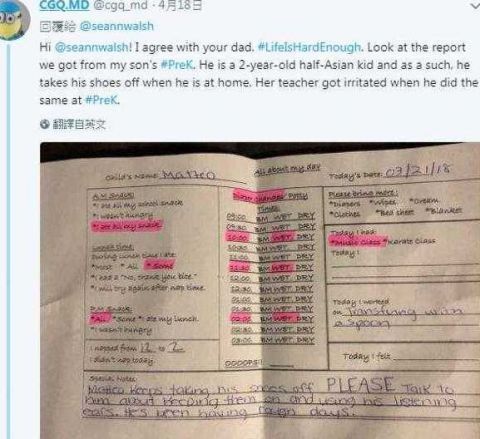 CGQ.MD @cgq_md · 4月18日
回覆給 @seannwalsh
Hi @seannwalsh! I agree with your dad. #LifeIsHardEnough. Look at the report
we got from my son's #PreK. He is a 2-year-old half-Asian kid and as such, he
takes his shoes off when he is at home. Her teacher got irritated when he did the
same at #PreK.
翻譯自英文
Child's Name: Matteo
All about my day
Today's Date: 03/21/18
A.M Snack:
*I ate all my school snack
*I wasn't hungry
*I ate all my snack
Lunch time:
During lunch time I ate:
*Most *All *Some
*I had a "No, thank you bite."
*I will try again after nap time.
P.M Snack:
*All *Some *I ate my lunch.
*I wasn't hungry
I napped from 12 to 2
I didn't nap today
Diaper Changes/ Potty
Times:
09:00 BM WET DRY
09:30 BM WET DRY
10:00 BM WET DRY
10:30 BM WET DRY
11:00 BM WET DRY
11:30 BM WET DRY
12:00 BM WET DRY
BM WET DRY
BM WET DRY
02:00 BM WET DRY
BM WET DRY
03:00 BM WET DRY
OOOOPS!!
Please bring more:
*Diapers *Wipes *Cream
*Clothes *Bed sheet *Blanket
Today I had:
*Music Class *Karate Class
Today I
Today I worked
on Transfering with
a spoon
Today I felt
Special Notes
Matteo keeps taking his shoes off PLEASE Talk to
him about keeping them on and using his listening
ears. He's been having rough days.